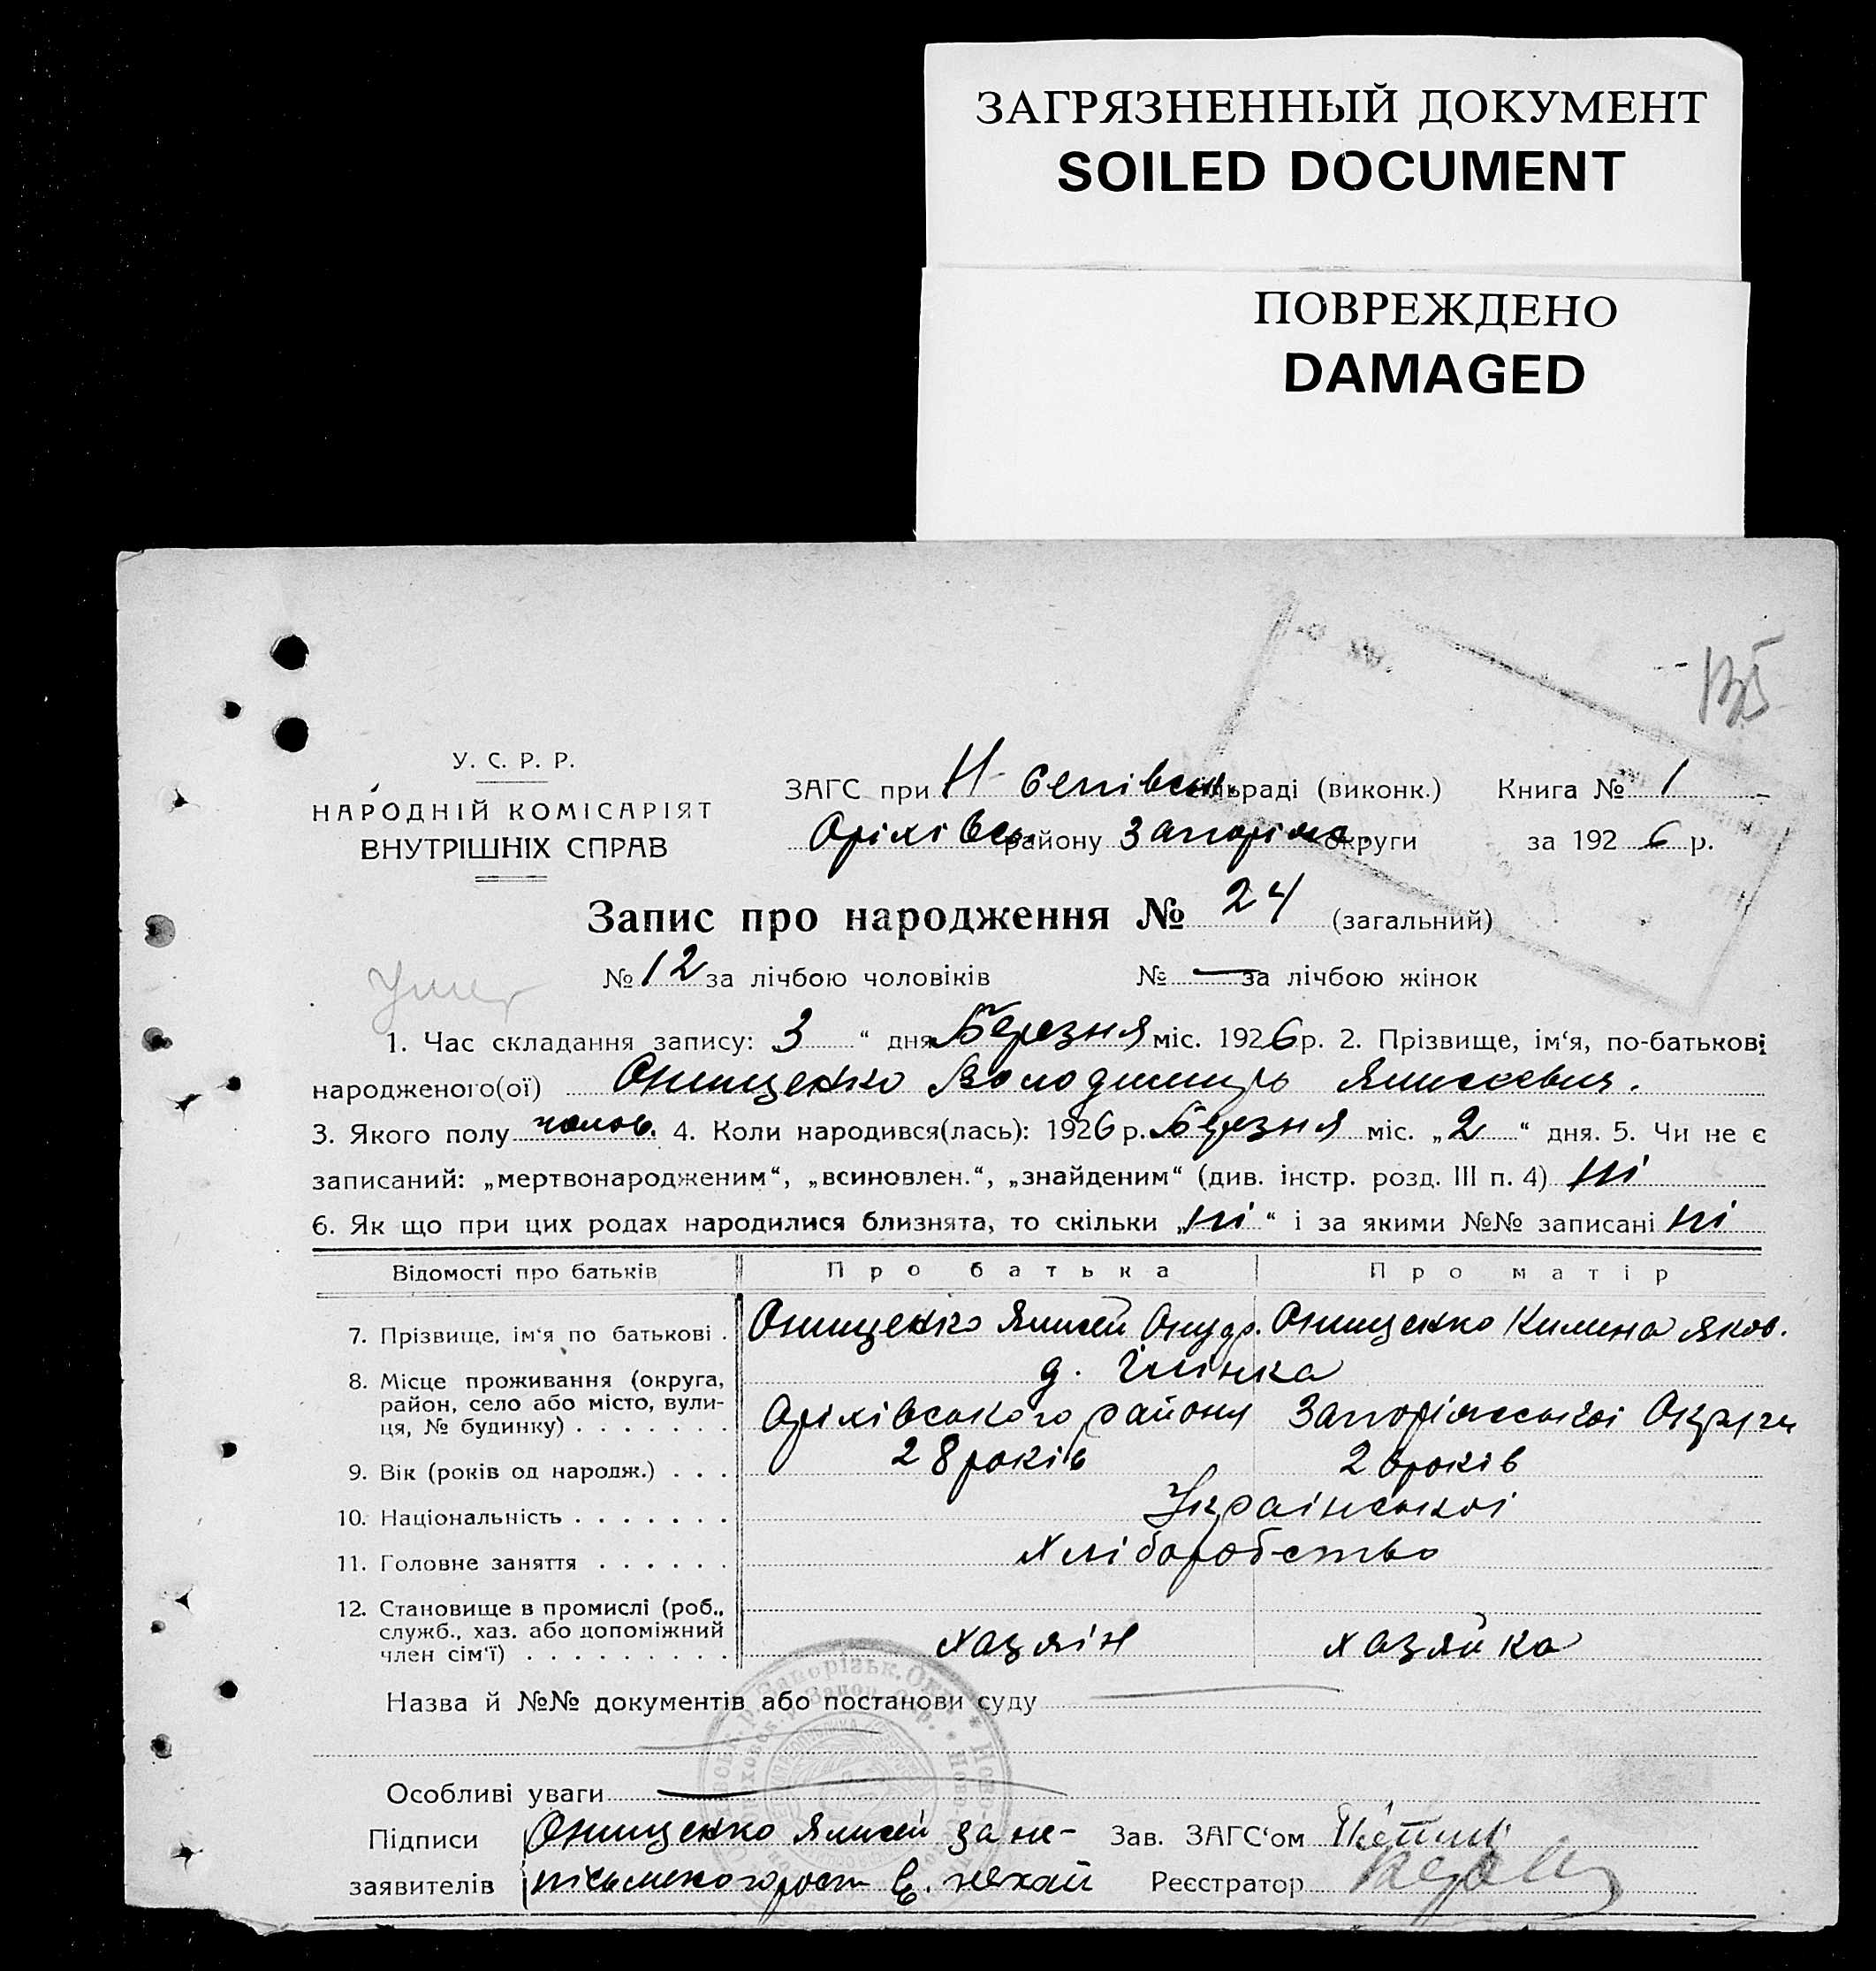 ЗАГРЯЗНЕННЫЙ ДОКУМЕНТ
SOILED DOCUMENT
ПОВРЕЖДЕНО
DAMAGED
У. С. Р. Р.
НАРОДНІЙ КОМІСАРІЯТ
ВНУТРІШНІХ СПРАВ
ЗАГС при Н раді (виконк.) Книга № 1
Оріхівськ. району Запоріжс. округи за 1926 р.
Запис про народження № 24 (загальний)
Умер
№ 12 за лічбою чоловіків № — за лічбою жінок
1. Час складання запису: 3 “ дня Березня міс. 1926 р. 2. Прізвище, ім‘я, по-батькові
народженого(ої) Онищенко Володимирь
3. Якого полу чолов. 4. Коли народився(лась): 1926 р. Березня міс. „ 2 “ дня. 5. Чи не є
записаний: „мертвонародженим“, „всиновлен.“, „знайденим“ (див. інстр. розд. III п. 4) ні
6. Як що при цих родах народилися близнята, то скільки „ ні “ і за якими №№ записані ні
Відомості про батьків Про батька Про матір
7. Прізвище, ім‘я по батькові . Онищенко Ялисей Онуфр. Онищенко Килина Яков.
8. Місце проживання (округа, район, село або місто, вулиця, № будинку) . . . . . . . д.
Оріхівського району Запоріжської Округи
9. Вік (років од народж.) . . . 28 років 26 років
10. Національність . . . . . . . Української
11. Головне заняття . . . . . . Хліборобство
12. Становище в промислі (роб.,
служб., хаз. або допоміжний
член сім‘ї) . . . . . . . . . хазяін хазяйка
Назва й №№ документів або постанови суду
Особливі уваги
Підписи Онищенко Ялисей за не- Зав. ЗАГС‘ом
заявителів Реєстратор